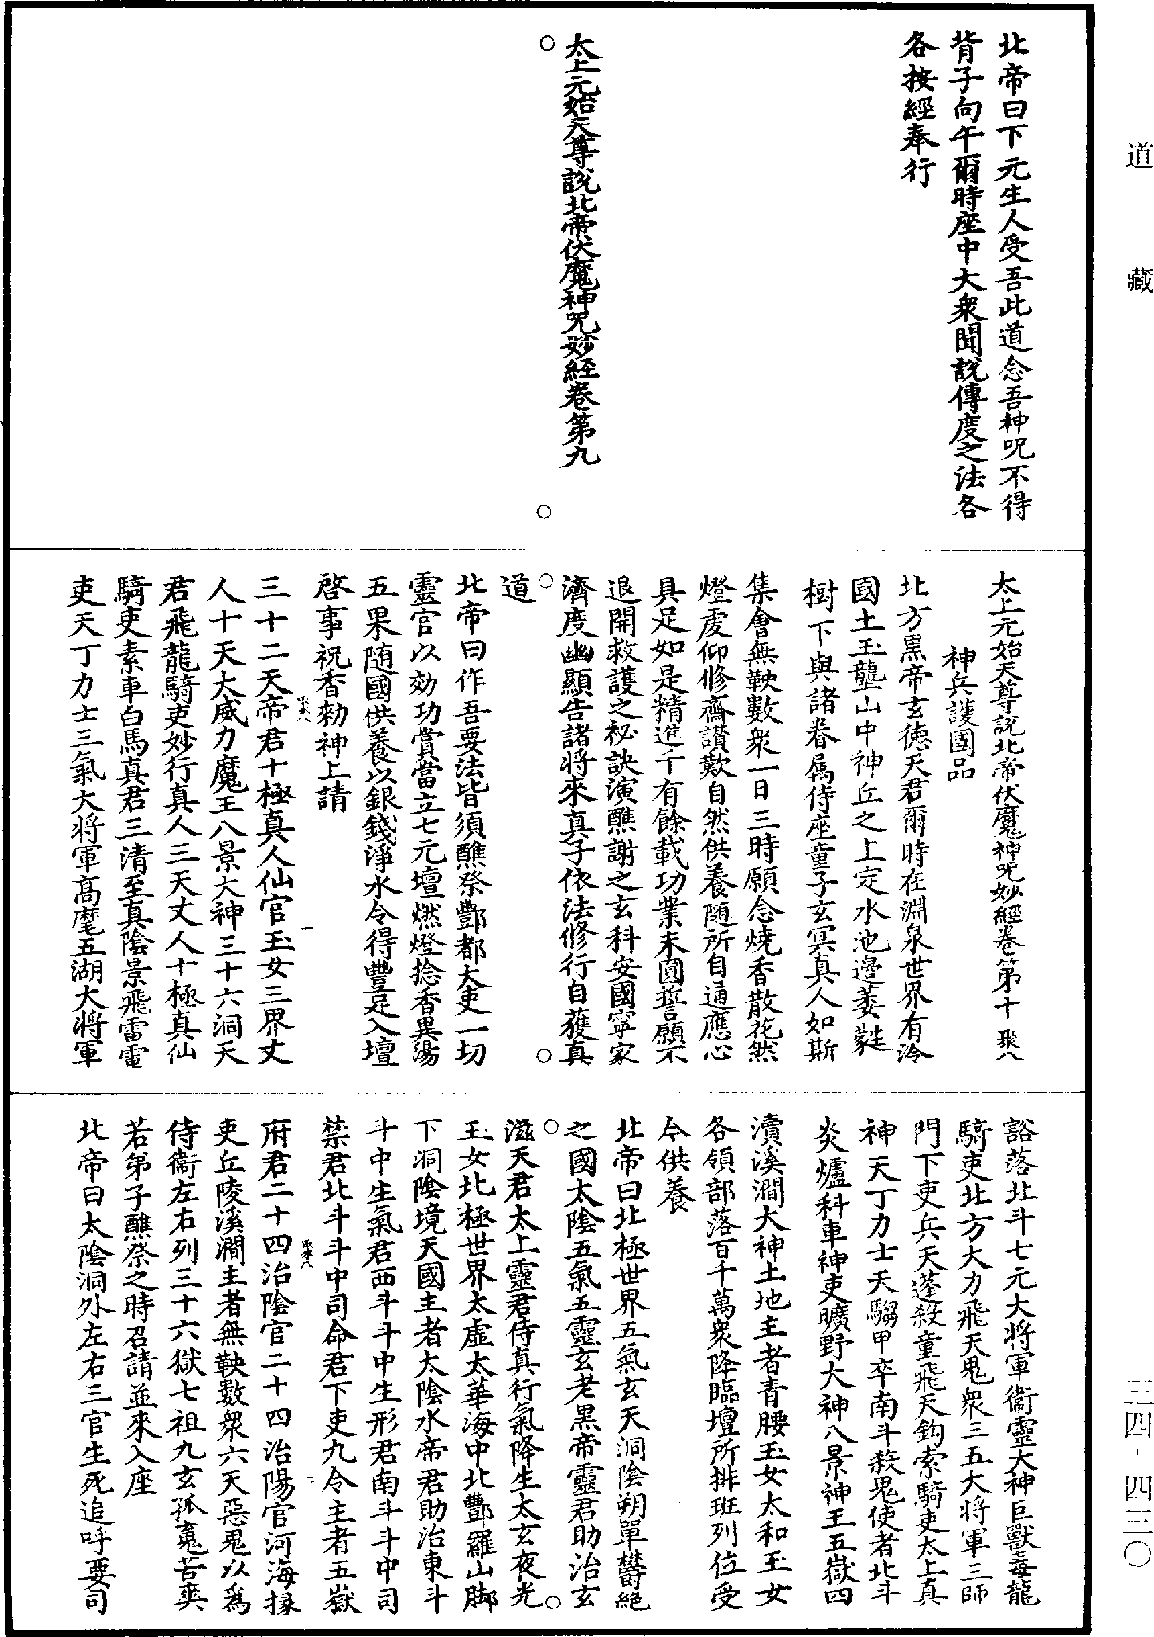 道藏
三四-四三〇
北帝曰下元生人受吾此道念吾神呪不得
背子向午爾時座中大衆聞說傳度之法各
各按經奉行
太上元始天尊說北帝伏魔神呪妙經卷第九
太上元始天尊說北帝伏魔神呪妙經卷第十 聚八
神兵護國品
北方黑帝玄德天君爾時在淵泉世界有泠
國土玉壟山中神丘之上定水池邊萎蕤
樹下與諸眷属侍座童子玄冥真人如斯
集會無鞅數衆一日三時願念燒香散花然
燈虔仰修齋讃歎自然供養随所自通應心
具足如是精進千有餘載功業未圓誓願不
退開救護之秘訣演醮謝之玄科安國寧家
濟度幽顯告諸將來真子依法修行自獲真
道
北帝曰作吾要法皆須醮祭酆都大吏一切
靈官以効功賞當立七元壇燃燈捻香異湯
五果随國供養以銀錢淨水令得豐足入壇
啓事祝香勑神上請
三十二天帝君十極真人仙官玉女三界丈
人十天大威力魔王八景大神三十六洞天
君飛龍騎吏妙行真人三天丈人十極真仙
騎吏素車白馬真君三清至真陰景飛雷電
吏天丁力士三氣大將軍高麾五湖大將軍
豁落北斗七元大將軍衞靈大神巨獸毒龍
騎吏北方大力飛天鬼衆三五大將軍三師
門下吏兵天蓬殺童飛天鈎索騎吏太上真
神天丁力士天騶甲卒南斗殺鬼使者北斗
炎爐科車神吏曠野大神八景神王五嶽四
瀆溪澗大神土地主者青腰玉女太和玉女
各領部落百千萬衆降臨壇所排班列位受
今供養
北帝曰北極世界五氣玄天洞陰朔單鬱絕
之國太陰五氣五靈玄老黑帝靈君助治玄
滋天君太上靈君侍真行氣降生太玄夜光
玉女北極世界太虛太華海中北酆羅山脚
下洞陰境天國主者太陰水帝君助治東斗
斗中生氣君西斗斗中生形君南斗斗中司
禁君北斗斗中司命君下吏九令主者五嶽
府君二十四治陰官二十四治陽官河海掾
吏丘陵溪澗主者無鞅數衆六天惡鬼以爲
侍衞左右列三十六獄七祖九玄孤䰟苦爽
若弟子醮祭之時召請並來入座
北帝曰太陰洞外左右三官生死追呼要司